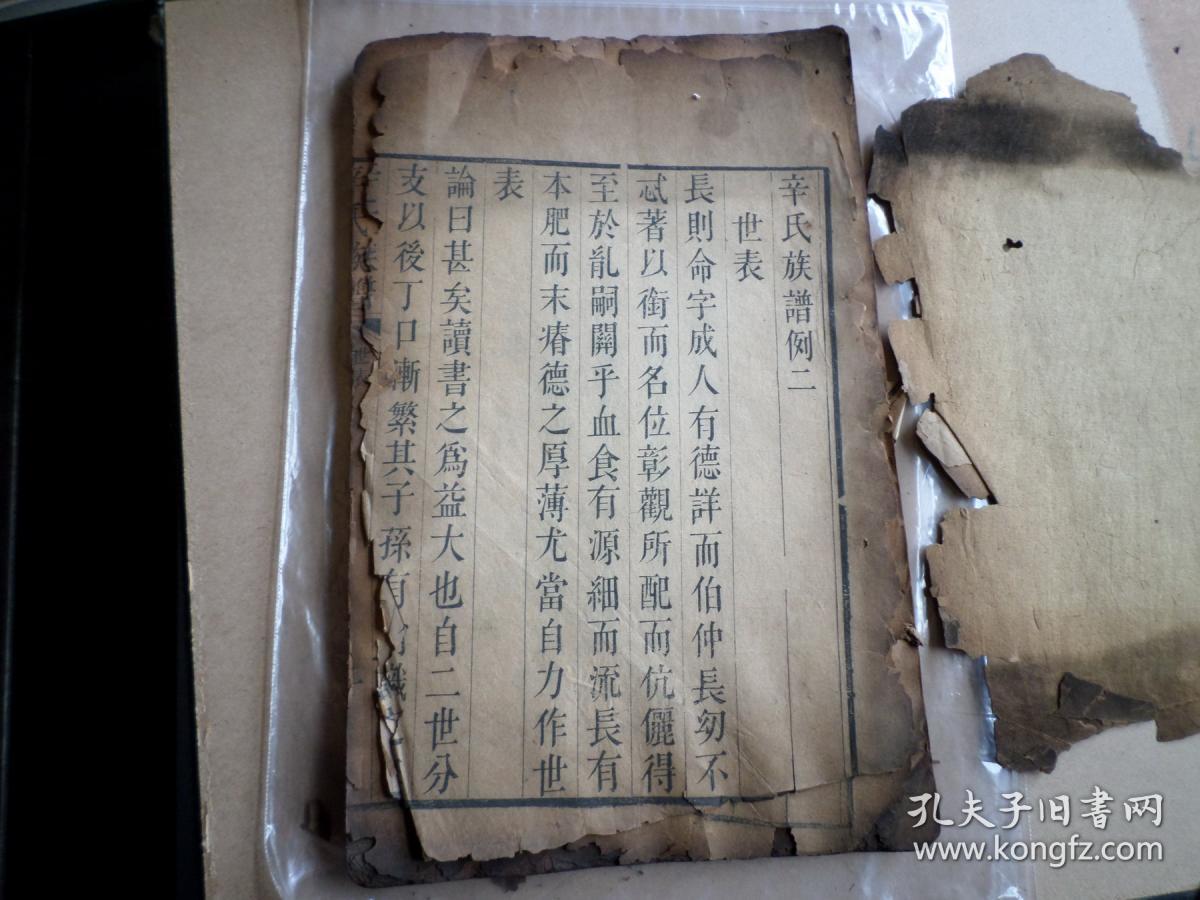 辛氏族譜例二
世表
長則命字成人有德詳而伯仲長㓜不
忒著以銜而名位彰觀所配而伉儷得
至於亂嗣關乎血食有源細而流長有
本肥而末瘠德之厚薄尤當自力作世
表
論曰甚矣讀書之爲益大也自二世分
支以後丁口漸繁其子孫有
孔夫子旧书网
www.kongfz.com